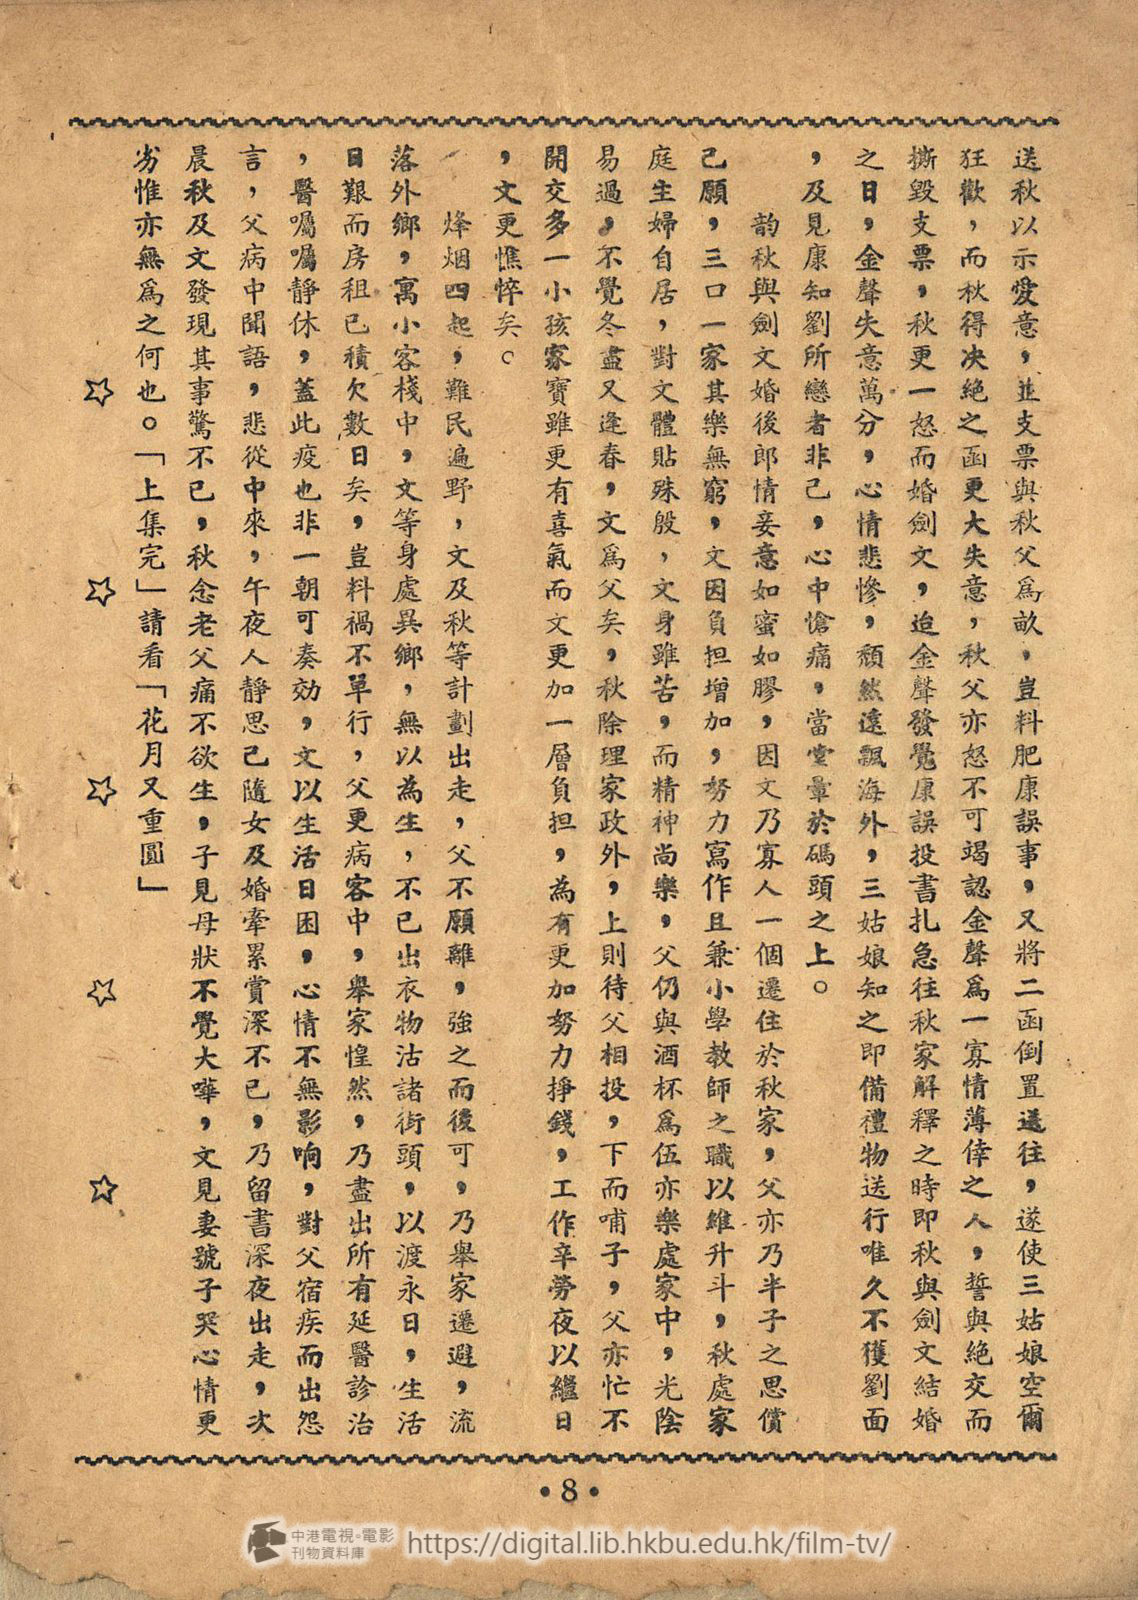 送秋以示愛意，並支票與秋父爲畝，豈料肥康誤事，又將二函倒置送往，遂使三姑娘空爾
狂歡，而秋得决絕之函更大失意，秋父亦怒不可竭認金聲爲一寡情薄倖之人，誓與絕交而
撕毀支票，秋更一怒而婚劍文，迨金聲發覺康誤投書扎急往秋家解釋之時即秋與劍文結婚
之日，金聲失意萬分，心情悲慘，頹然遠飄海外，三姑娘知之即備禮物送行唯久不獲劉面
，及見康知劉所戀者非己，心中愴痛，當堂暈於碼頭之上。
韵秋與劍文婚後郎情妾意如蜜如膠，因文乃寡人一個遷住於秋家，父亦乃半子之思償
己願，三口一家其樂無窮，文因負担增加，努力寫作且兼小學教師之職以維升斗，秋處家
庭生婦自居，對文體貼殊殷，文身雖苦，而精神尚樂，父仍與酒杯爲伍亦樂處家中，光陰
易過，不覺冬盡又逢春，文爲父矣，秋除理家政外，上則待父相投，下而哺子，父亦忙不
開交多一小孩家寶雖更有喜氣而文更加一層負担，為有更加努力掙錢，工作辛勞夜以繼日
，文更憔悴矣。
烽烟四起，難民遍野，文及秋等計劃出走，父不願離，強之而後可，乃舉家遷避，流
落外鄉，寓小客棧中，文等身處異鄉，無以為生，不已出衣物沽諸街頭，以渡永日，生活
日艱而房租已積欠數日矣，豈料禍不單行，父更病客中，舉家惶然，乃盡出所有延醫診治
，醫囑囑靜休，蓋此疫也非一朝可奏効，文以生活日困，心情不無影响，對父宿疾而出怨
言，父病中聞語，悲從中來，午夜人靜思己隨女及婚牽累賞深不已，乃留書深夜出走，次
晨秋及文發現其事驚不已，秋念老父痛不欲生，子見母狀不覺大嘩，文見妻號子哭心情更
劣惟亦無爲之何也。「上集完」請看「花月又重圓」
☆ ☆ ☆ ☆ ☆
•8•
中港電視·電影
刊物資料庫
https://digital.lib.hkbu.edu.hk/film-tv/